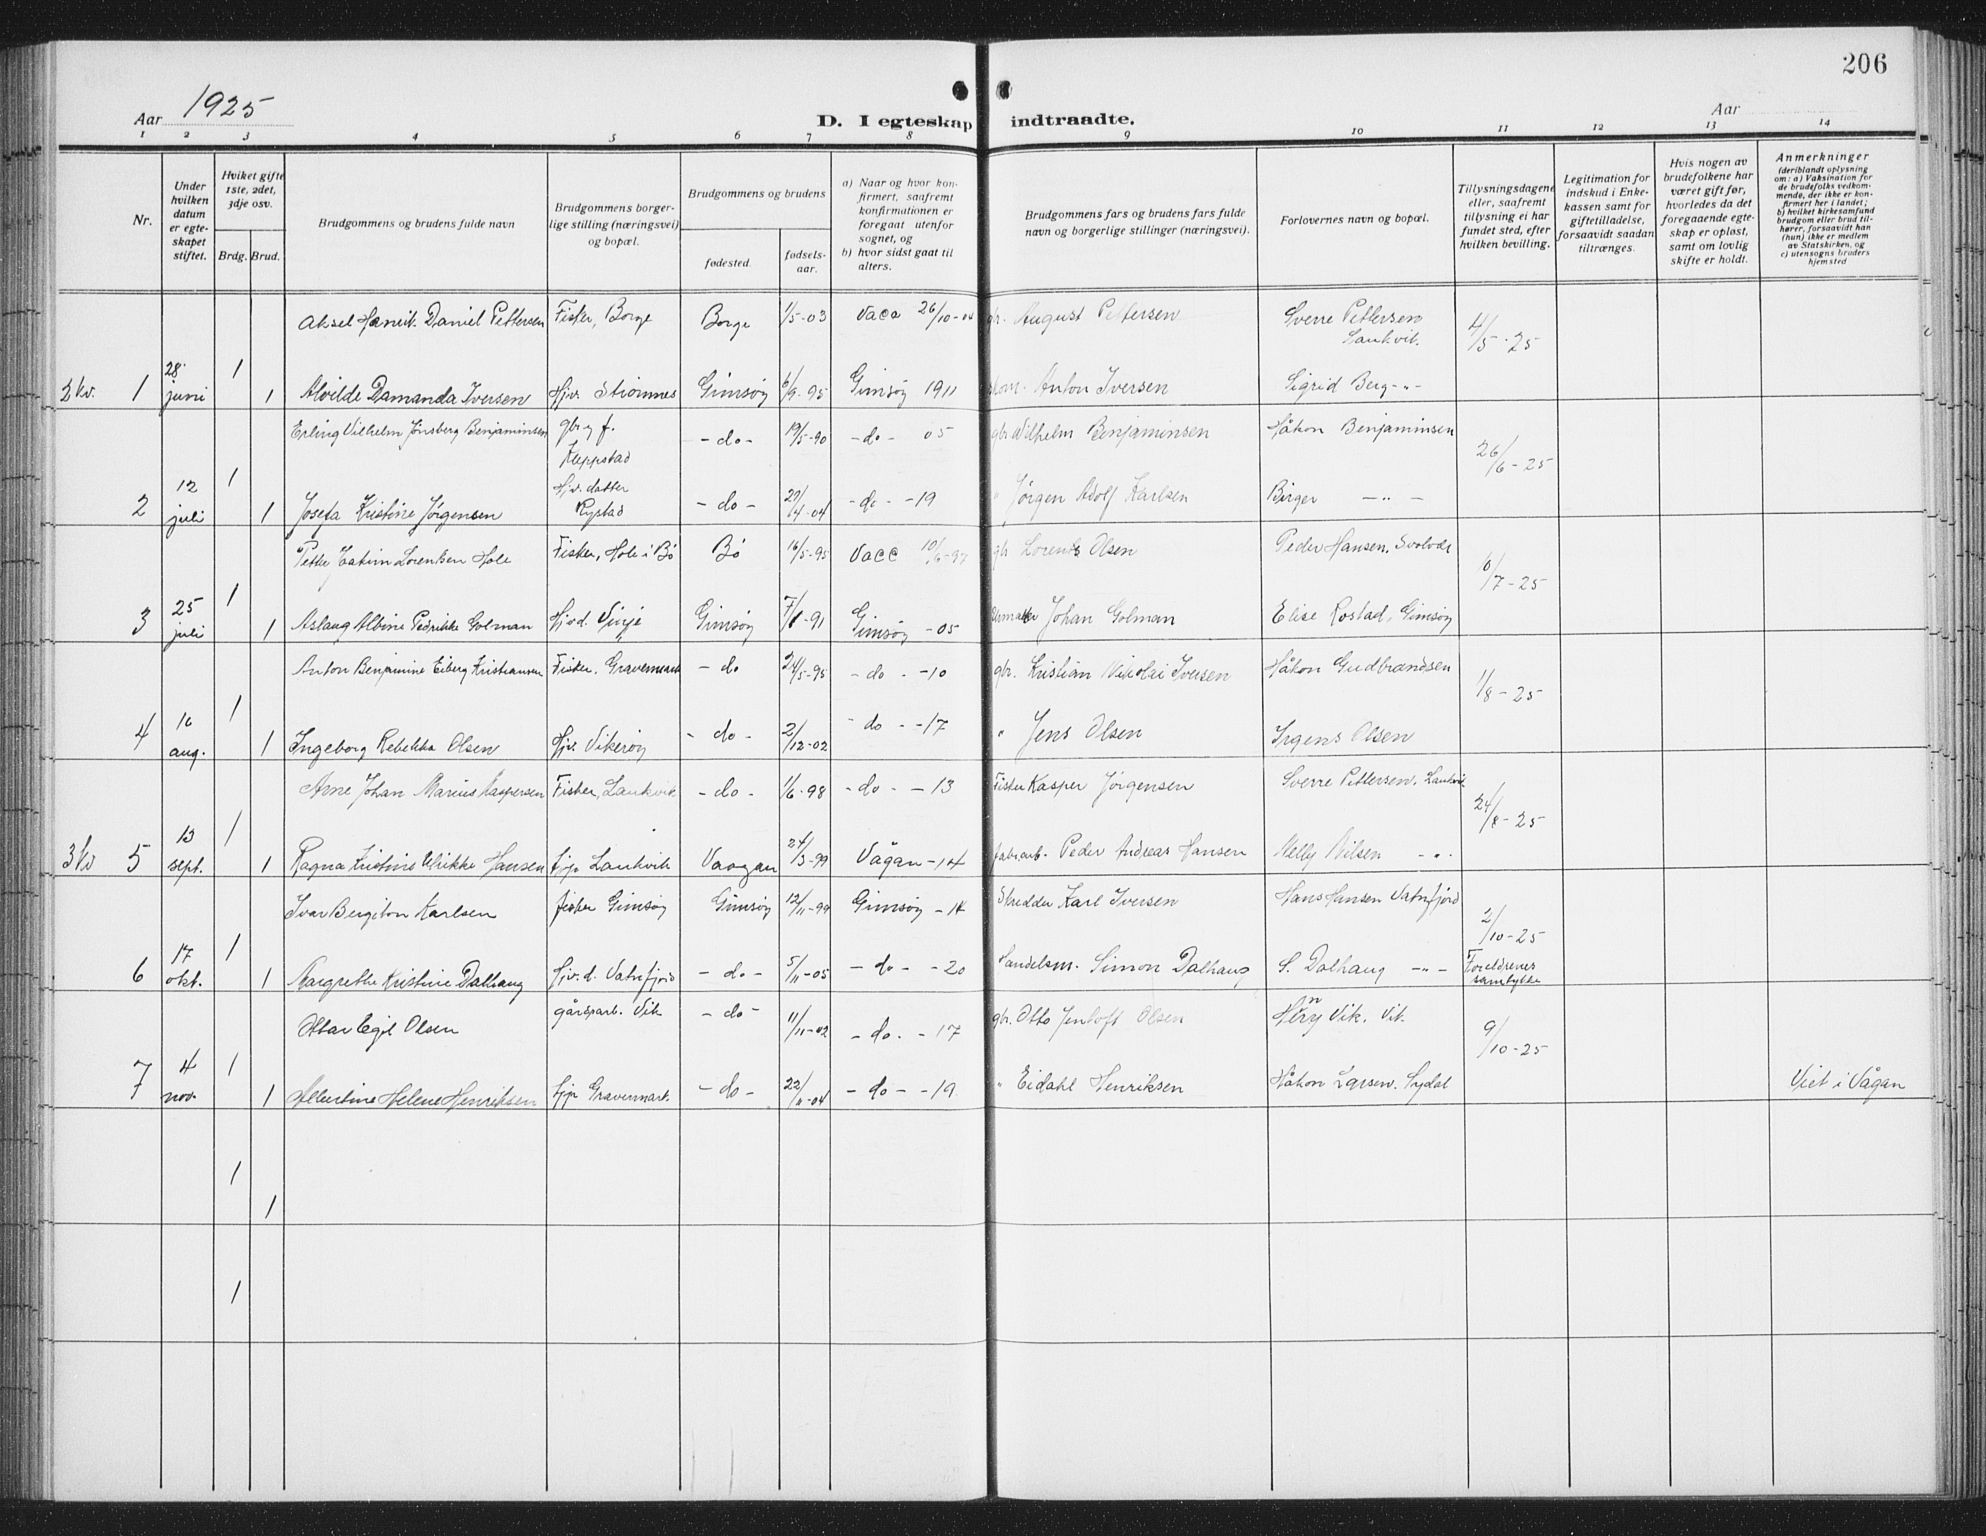 206
Aar 1925
Aar
D. I egteskap indtraadte.
1 2 3 4 5 6 7 8 9 10 11 12 13 14
Nr.
Under hvilken datum er egteskapet stiftet.
Hviket gifte 1ste, 2det, 3dje osv.
Brdg. Brud.
Brudgommens og brudens fulde navn
Brudgommens borgerlige stilling (næringsvei) og bopæl.
Brudgommens og brudens
fødested.
fødselsaar.
a) Naar og hvor konfirmert, saafremt konfirmationen er foregaat utenfor sognet, og
b) hvor sidst gaat til alters.
Brudgommens fars og brudens fars fulde navn og borgerlige stillinger (næringsvei).
Forlovernes navn og bopæl.
Tillysningsdagene eller, saafremt tillysning ei har fundet sted, efter hvilken bevilling.
Legitimation for indskud i Enkekassen samt for giftetilladelse, forsaavidt saadan tiltrænges.
Hvis nogen av brudefolkene har været gift før, hvorledes da det foregaaende egteskap er opløst, samt om lovlig skifte er holdt.
Anmerkninger (deriblandt oplysning om: a) Vaksination for de brudefolks vedkommende, der ikke er konfirmert her i landet; b) hvilket kirkesamfund brudgom eller brud tilhører, forsaavidt han (hun) ikke er medlem av Statskirken, og c) utensogns bruders hjemsted
Aksel Henrik Daniel Pettersen Fisker, Borge Borge 1/5-03 Vacc 26/10-04 gbr. August Pettersen Sverre Pettersen Laukvik. 4/5-25
2 kv. 1 28. juni 1 1 Alvilde Damanda Iversen Hjv. Strømnes Gimsøy 6/9-95 Gimsøy 1911 Anton Iversen Sigrid Berg -"-
Erling Vilhelm Jønsberg Benjaminsen gbr. og f. Kleppstad -do- 19/5-90 -do- 05 gbr. Vilhelm Benjaminsen Håkon Benjaminsen 26/6-25
2 12 juli 1 1 Josefa Kristine Jørgensen Hjv. datter Rystad -do- 29/4-04 -do- -19 " Jørgen Adolf Karlsen Birger -"-
Petter Joakim Lorentsen Hole Fisker, Hole i Bø Bø 16/5-95 Vacc 10/6-97 gbr Lorents Olsen Peder Hansen, Svolvær 6/7-25
3 25 juli 1 1 Aslaug Albine Pedrikke Golman Hjvd. Vinje Gimsøy 7/8-91 Gimsøy -05 Johan Golman Elise Rostad, Gimsøy
Anton Benjamine Eiberg Kristiansen Fisker. Gravermark -do 24/5-95 -do- -10 gbr. Kristian Nikolai Iversen Håkon Gudbrandsen 1/8-25
4 16 aug. 1 1 Ingeborg Rebekka Olsen Hjv. Vikerøy -do- 2/12-02 -do- -17 " Jens Olsen Irgens Olsen
Arne Johan Marius Kaspersen Fisker, Laukvik -do- 1/6-98 -do- -13 Fisker Kasper Jørgensen Sverre Pettersen. Laukvik 24/8-25
3 kv 5 13 sept. 1 1 Ragna Kristine Ulrikke Hansen tjp Laukvik Vaagan 24/3-99 Vågan -14 fabrarb. Peder Andreas Hansen Nelly Nilsen -"-
Ivar Bergiton Karlsen fisker Gimsøy Gimsøy 12/11-99 Gimsøy -14 Skredder Karl Iversen Hans Hansen Vatnfjord 2/10-25
6 17 okt. 1 1 Margrethe Kristine Dalhaug Hjv. d. Vatnfjord -do- 5/11-05 -do- -20 Handelsm. Simon Dalhaug S. Dalhaug -"- Foreldrenes samtykke
Ottar Egil Olsen gårdsarb. Vik -do- 11/11-02 -do- -17 gbr. Otto Jentoft Olsen Henry Vik. Vik. 9/10-25
7 4 nov. 1 1 Albertine Helene Henriksen tjp Gravermark. -do- 22/11-04 -do- -19 " Eidahl Henriksen Håkon Larsen. Sydal Viet i Vågan
1
1
1